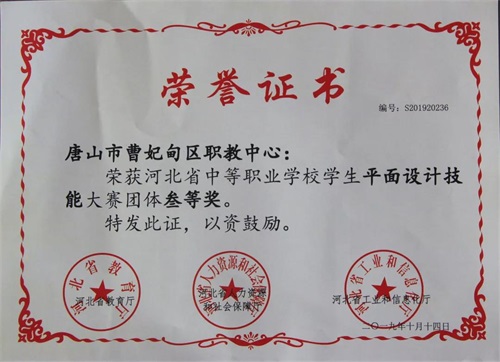 荣誉证书
编号：S201920236
唐山市曹妃甸区职教中心：
荣获河北省中等职业学校学生平面设计技
能大赛团体叁等奖。
特发此证，以资鼓励。
河北省教育厅
河北省教育厅
河北省人力资源和社会保障厅
河北省人力资源
和社会保障厅
河北省工业和信息化厅
河北省工业和信息化厅
二〇一九年十月十四日